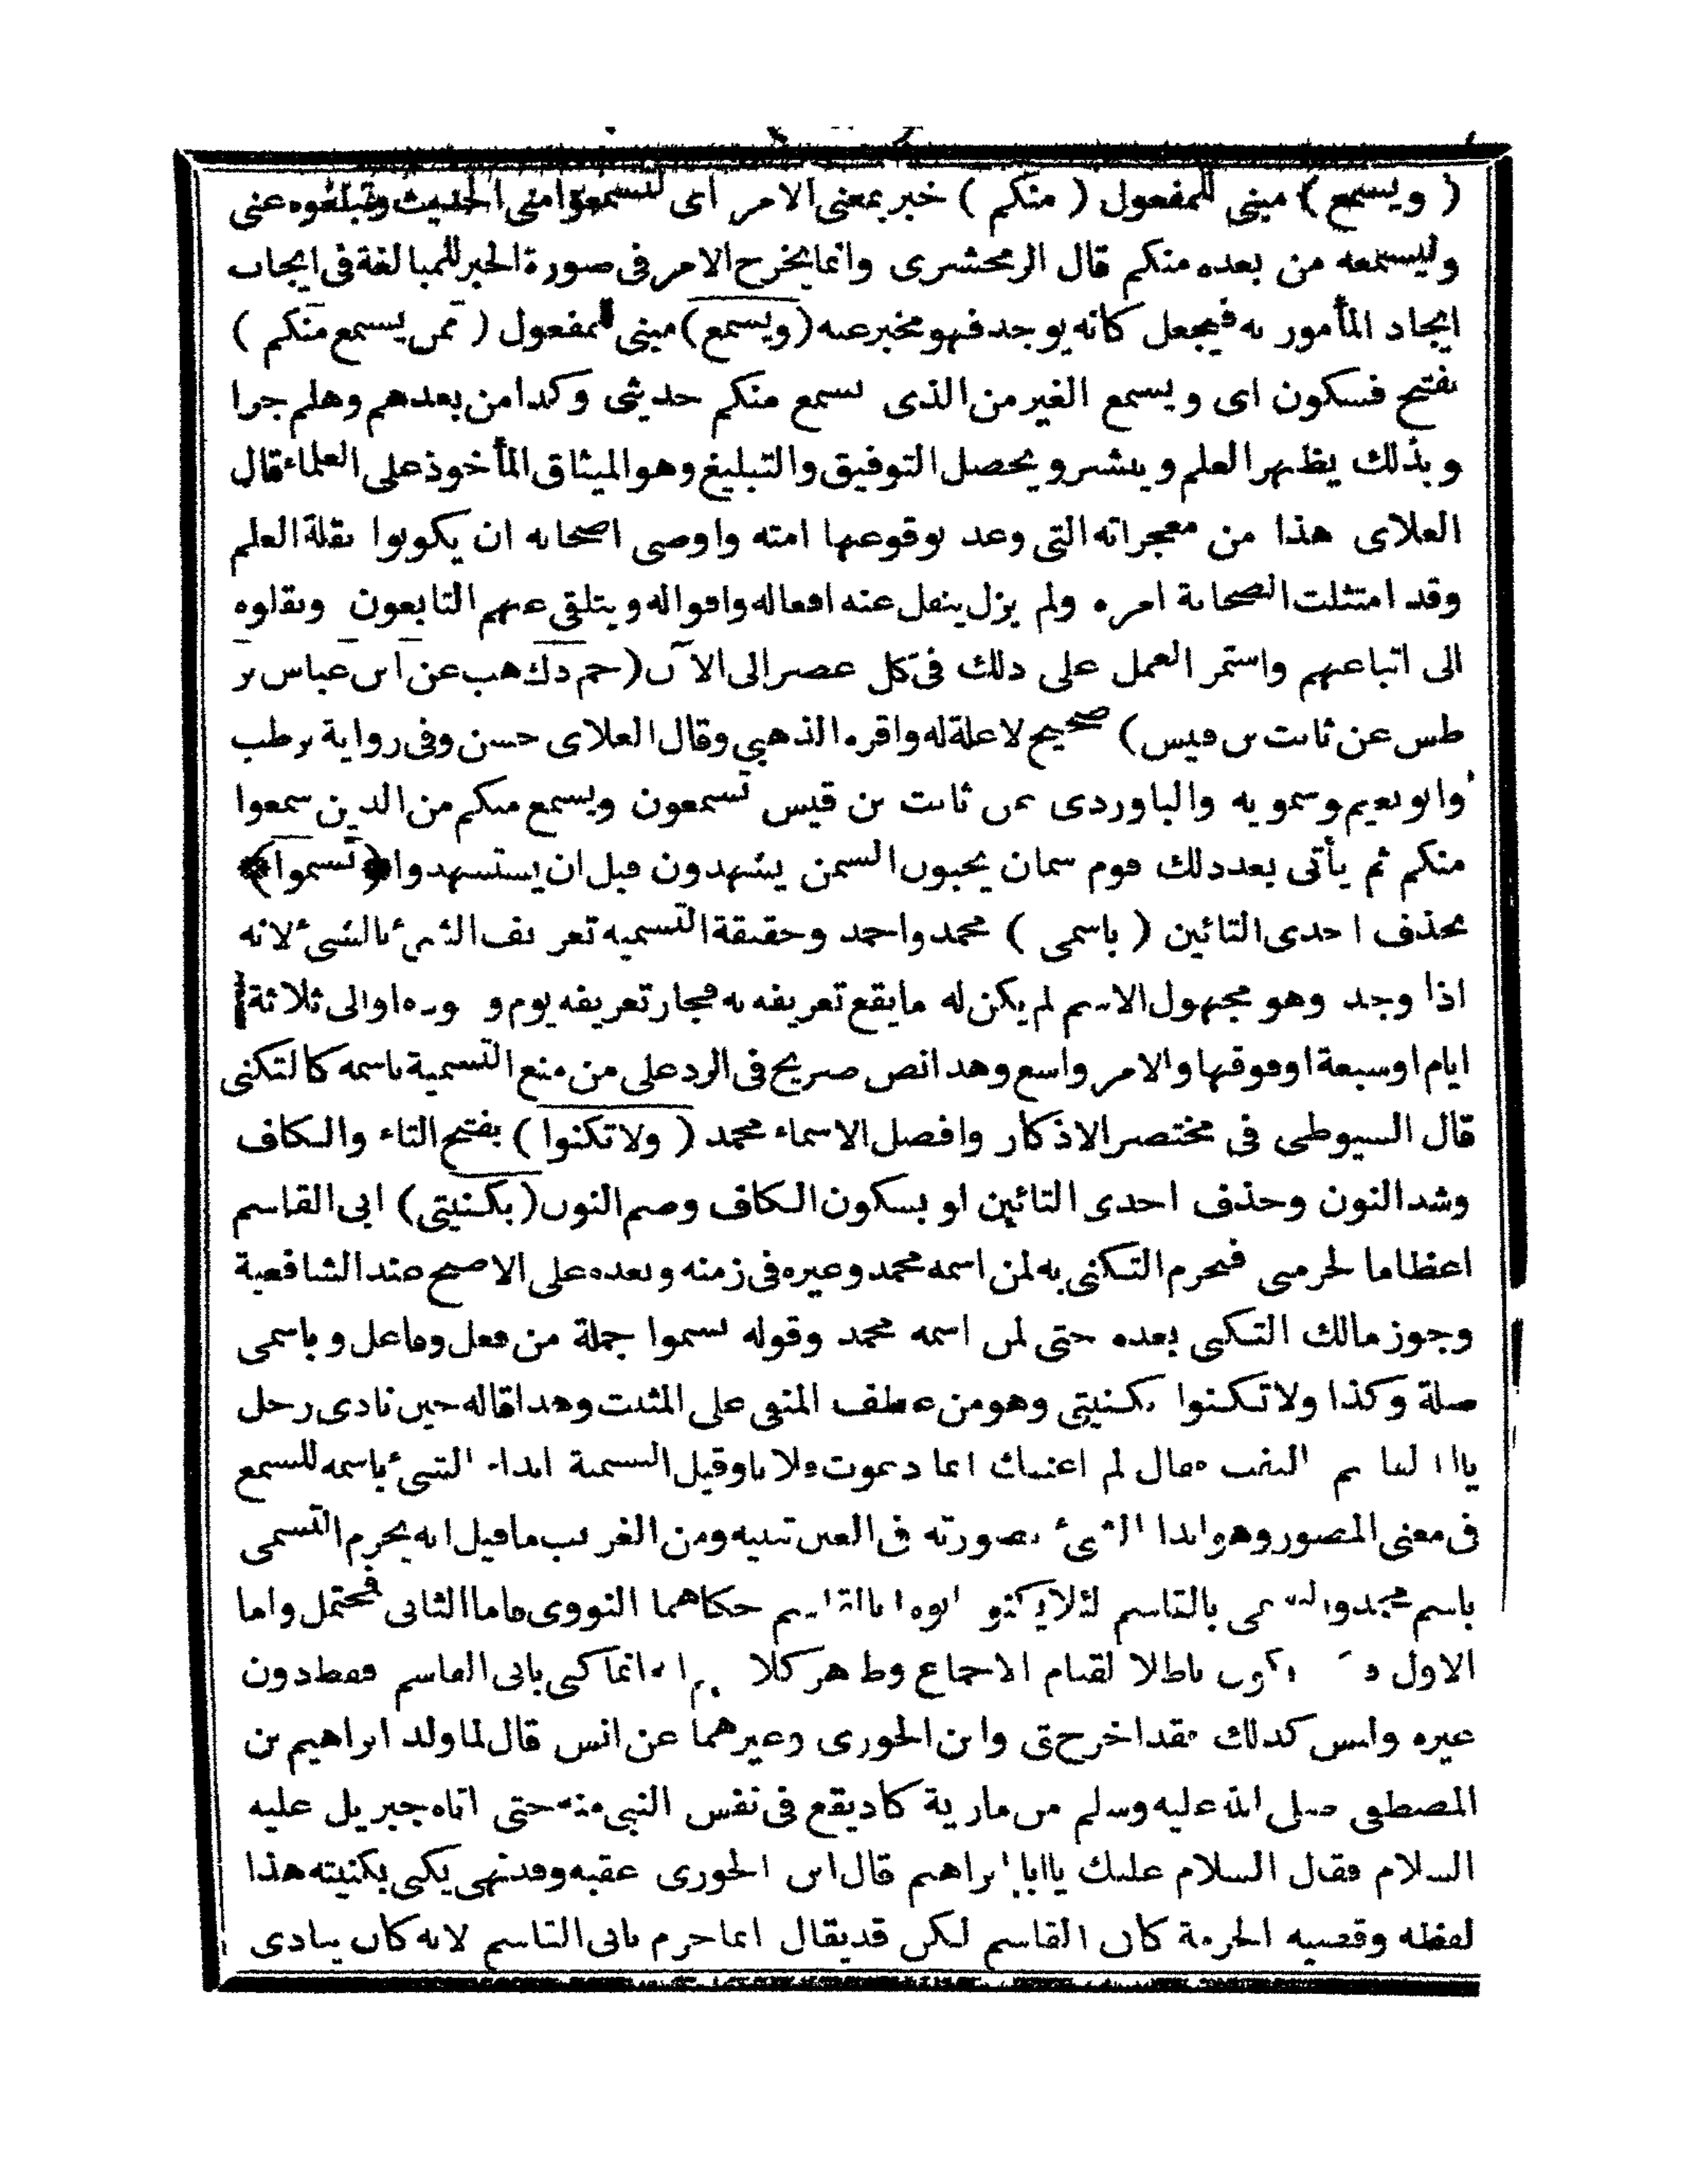 ( ويسمع ) مبنى للمفعول ( منكم ) خبر بمعنى الامر اى لتسمعوا منى الحديث وتبلغوه عنى
وليسمعه من بعده منكم قال الزمخشرى وانما يخرج الامر فى صورة الخبر للمبالغة فى ايجاب
ايجاد المأمور به فيجعل كانه يوجد فهو مخبر عنه ( ويسمع ) مبنى للمفعول ( ممن يسمع منكم )
بفتح فسكون اى ويسمع الغير من الذى يسمع منكم حديثى وكذا من بعدهم وهلم جرا
وبذلك يظهر العلم وينشر ويحصل التوفيق والتبليغ وهو الميثاق المأخوذ على العلماء قال
العلاى هذا من معجزاته التى وعد بوقوعها امته واوصى اصحابه ان يكونوا نقلة العلم
وقد امتثلت الصحابة امره ولم يزل ينقل عنه افعاله واقواله ويتلقى عنهم التابعون ونقلوه
الى اتباعهم واستمر العمل على ذلك فى كل عصر الى الآن ( حم د ك هب عن ابن عباس بز
طس عن ثابت بن قيس ) صحيح لا علة له واقره الذهبي وقال العلاى حسن وفى رواية بز طب
وابو نعيم وسمويه والباوردى عن ثابت بن قيس تسمعون ويسمع منكم من الذين سمعوا
منكم ثم يأتى بعد ذلك قوم سمان يحبون السمن يشهدون قبل ان يستشهدوا ﴿ تسموا ﴾
بحذف احدى التائين ( باسمى ) محمد واحمد وحقيقة التسمية تعريف الشئ بالشئ لانه
اذا وجد وهو مجهول الاسم لم يكن له ما يقع تعريفه به فجاز تعريفه يوم و اوالى ثلاثة
ايام او سبعة او فوقها والامر واسع وهذا نص صريح فى الرد على من منع التسمية باسمه كالتكنى
قال السيوطى فى مختصر الاذكار وافضل الاسماء محمد ( ولا تكنوا ) بفتح التاء والكاف
وشد النون وحذف احدى التائين او بسكون الكاف وضم النون ( بكنيتى ) ابى القاسم
اعظاما لحرمتى فيحرم التكنى به لمن اسمه محمد وغيره فى زمنه وبعده على الاصح عند الشافعية
وجوز مالك التكنى بعده حتى لمن اسمه محمد وقوله تسموا جملة من فعل وفاعل وباسمى
صلة وكذا ولا تكنوا بكنيتى وهو من عطف المنفى على المثبت وهذا قاله حين نادى رجل
يا ابا القاسم فقال لم اعنك انما دعوت فلانا وقيل التسمية ابداء الشئ باسمه للسمع
فى معنى المصور وهو ابدا الشئ بصورته فى العين تنبيه ومن الغريب ما قيل انه يحرم التسمى
باسم محمد والتسمى بالقاسم لئلا يكنى ابوه ابا القاسم حكاهما النووى فاما الثانى فمحتمل واما
الاول باطلا لقيام الاجماع وظاهر كلا انه انما كنى بابى القاسم فقط دون
غيره وليس كذلك فقد اخرج وابن الجوزى وغيرهما عن انس قال لما ولد ابراهيم بن
المصطفى صلى الله عليه وسلم من مارية كاد يقع فى نفس النبى منه حتى اتاه جبريل عليه
السلام فقال السلام عليك يا ابا ابراهيم قال ابن الجوزى عقبه وقد نهى يكنى بكنيته هذا
لفظه وقضيه الحرمة كان القاسم لكن قد يقال انما حرم بابى القاسم لانه كان ينادى